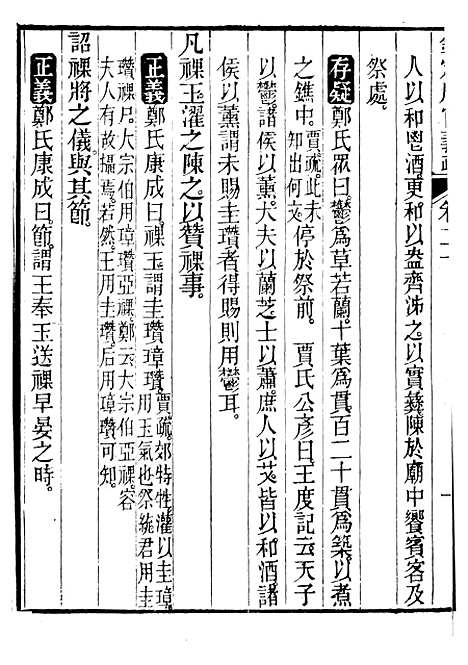 人以和鬯酒更和以盎齊泲之以實彝陳於廟中饗賓客及
祭處。
存疑鄭氏眾曰鬱爲草若蘭。十葉爲貫百二十貫爲築以煮
之鐎中。賈疏。此未知出何文。停於祭前。 賈氏公彥曰王度記云天子
以鬯諸侯以薰大夫以蘭芝士以蕭庶人以艾皆以和酒諸
侯以薰謂未賜圭瓚者得賜則用鬱耳。
凡祼玉濯之陳之以贊祼事。
正義鄭氏康成曰祼玉謂圭瓚璋瓚。賈疏。郊特牲灌以圭璋用玉氣也祭統君用圭
瓚祼尸。大宗伯用璋瓚亞祼。鄭云大宗伯亞祼。容夫人有故攝焉。若然。王用圭瓚。后用璋瓚可知。
詔祼將之儀與其節。
正義鄭氏康成曰節謂王奉玉送祼早晏之時。